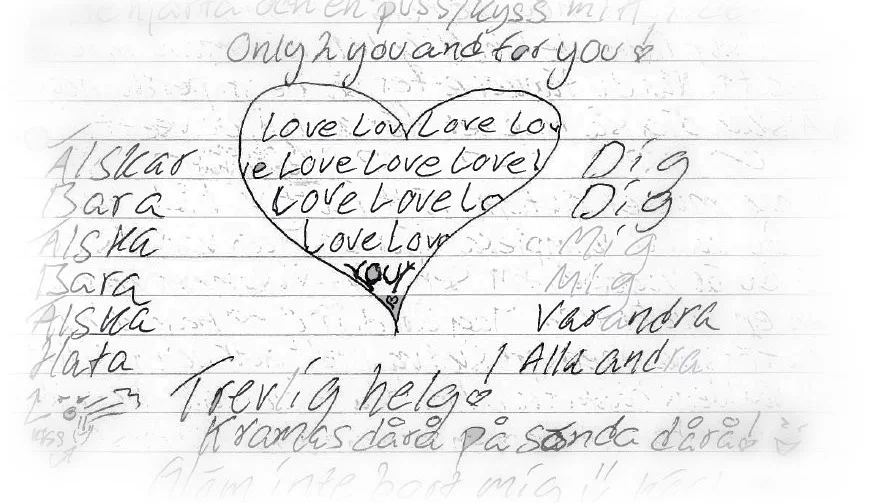 hjärta och en puss/kyss mitt i
Only 2 you and for you
Love Lov Love Lov
Älskar e Love Love Love! Dig
Bara Love Love Lo Dig
Älska Love Love Mig
Bara You Mig
Älska Varandra
Hata ! Alla andra
Trevlig helg
Kramas dårå på sönda dårå!
Glöm inte bort mig !!